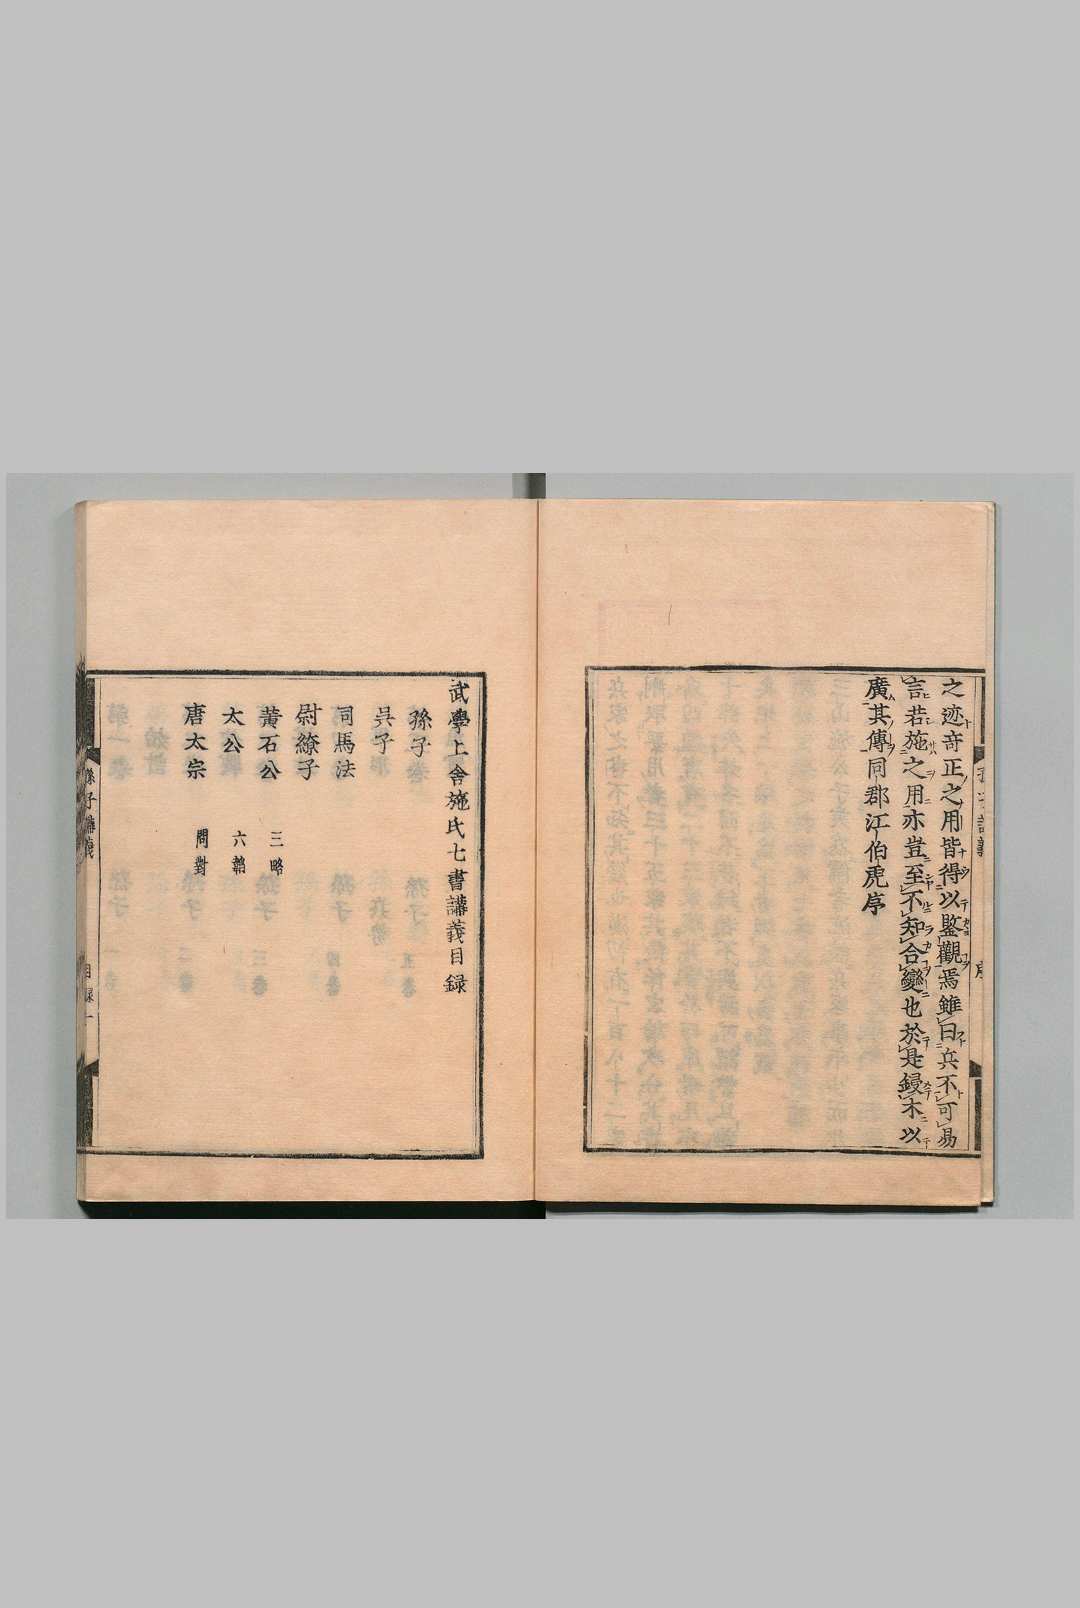 之迹竒正之用皆得以鑒觀焉雖曰兵不可易
言若施之用亦豈至不知合變也於是鋟木以
廣其傳同郡江伯虎序
武學上舍施氏七書講義目録
孫子
吳子
司馬法
尉繚子
黃石公 三略
太公 六韜
唐太宗 問對
孫子講義 目録 一